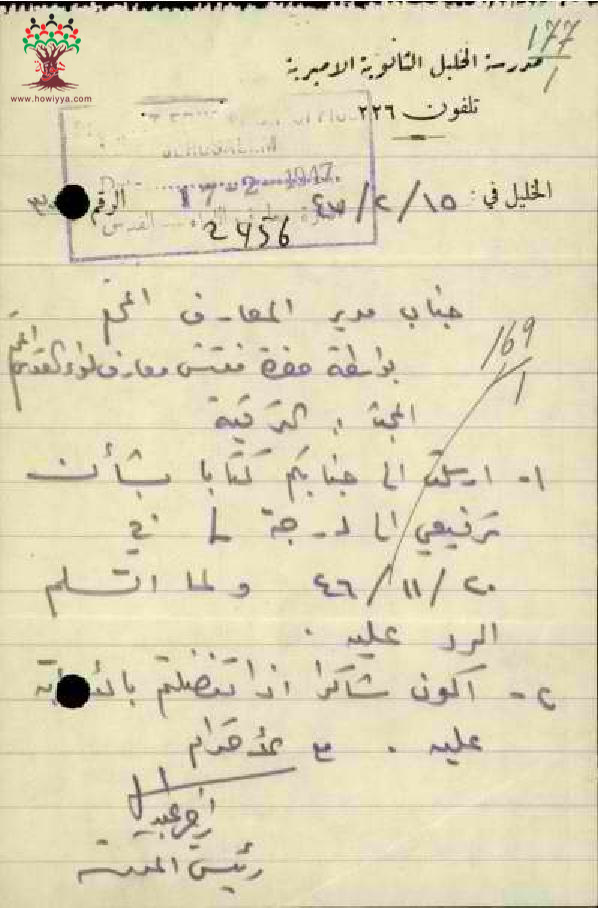 www.howiyya.com
177
1
مدرسة الخليل الثانوية الاميرية
تلفون ٢٢٦
JERUSALEM
17-2-1947
الخليل في: ١٥/٢/٤٧ الرقم
2456
جناب مدير المعارف
169
1
بواسطة حضرة مفتش معارف لواء القدس
المبحث: الترقية
١- ارسلت الى جنابكم كتابا بشأن
ترفيعي الى درجة في
٢٠/١١/٤٦ ولما استلم
الرد عليه.
٢- اكون شاكرا اذا تفضلتم بالاجابة
عليه. مع الاحترام
رئيس المدرسة